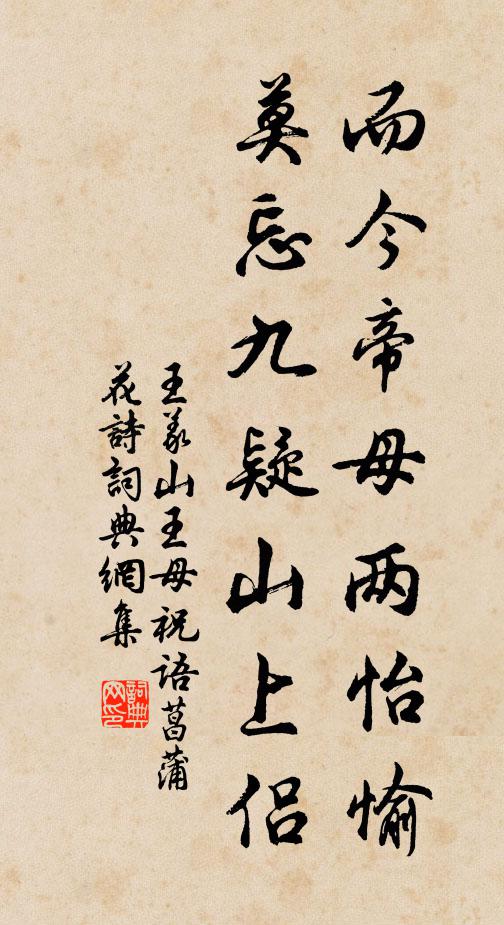 而今帝母两怡愉
莫忘九疑山上侣
王义山王母祝语菖蒲
花詩詞典網集
詞典网印